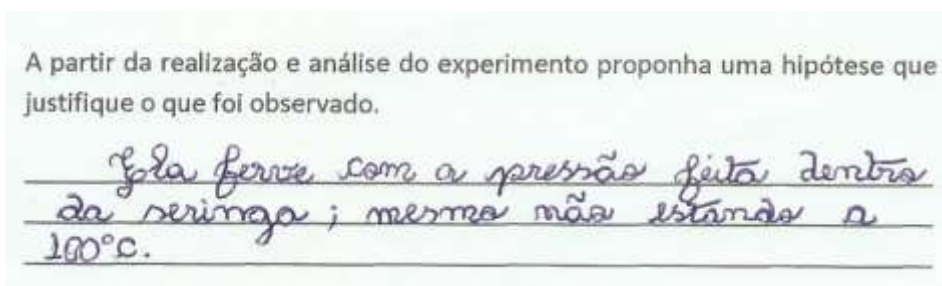 A partir da realização e análise do experimento proponha uma hipótese que
justifique o que foi observado.
Ela ferve com a pressão feita dentro
da seringa; mesmo não estando a
100°C.